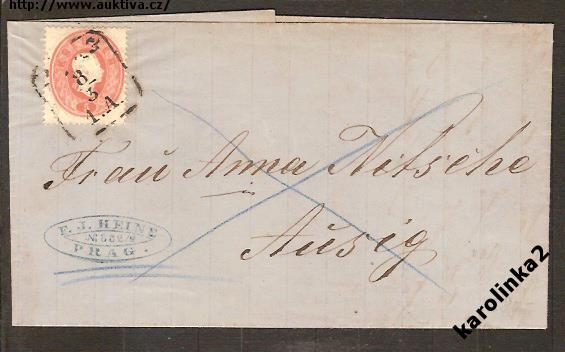 http://www.auktiva.cz/
3
8/3
1.A.
Frau Anna Nitsche
in
Ausig
F. J. HEINE
PRAG.
karolinka2